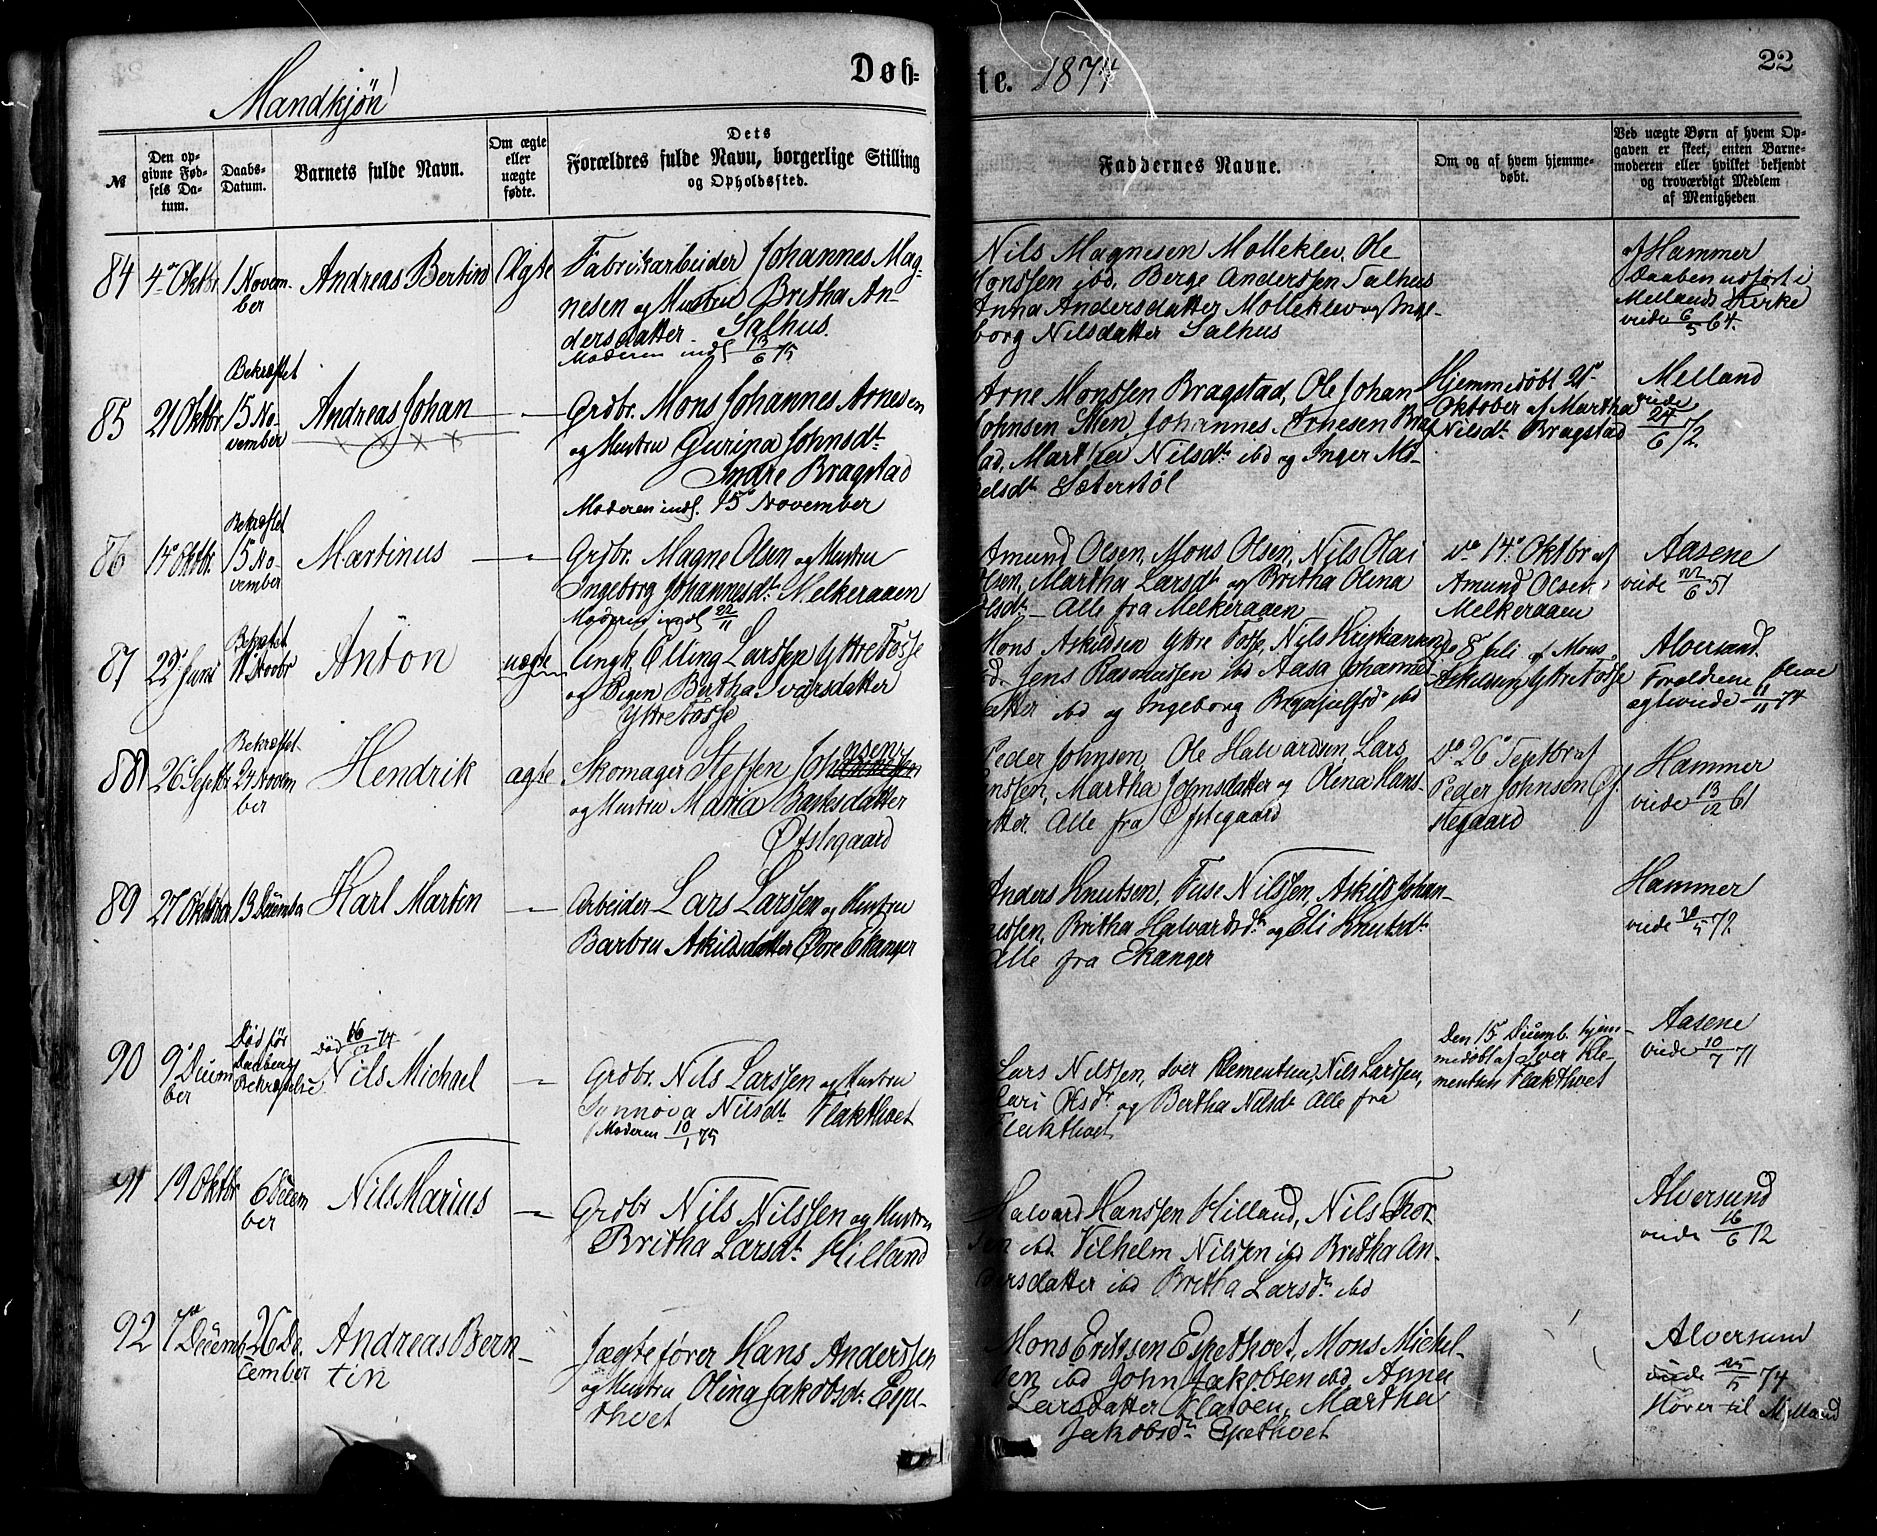 Mandkjøn
Døb-
te. 1874
22
№
Den op-
givne Fød-
sels Da-
tum.
Daabs-
Datum.
Barnets fulde Navn.
Om ægte
eller
uægte
fødte.
Dets
Forældres fulde Navn, borgerlige Stilling
og Opholdssted.
Faddernes Navne.
Om og af hvem hjemme-
døbt.
Ved uægte Børn af hvem Op-
gaven er skeet, enten Barne-
moderen eller hvilket bekjendt
og troværdigt Medlem
af Menigheden
84
4de Oktbr
1 Novem-
ber
Andreas Bertin
Ægte
Fabrikarbeider Johannes Mag-
nesen og Hustru Britha An-
dersdatter. Salhus.
Moderen indl 13/6 75
Nils Magnesen Molleklev, Ole
Monssen ibd, Berge Anderssen Salhus
Anna Andersdatter Molleklev og Inge-
borg Nilsdatter Salhus
af Hammer
Daaben udført i
Mellands Kirke
viede 6/5 64.
85
21 Oktbr
Bekræftet
15 No-
vember
Andreas Johan
Grdbr. Mons Johannes Arnesen
og Hustru Gurina Johnsdt.
Indre Bragstad
Moderen indl. 15 November
Arne Monssen Bragstad, Ole Johan
Johnsen Johannes Arnesen Brag-
stad, Martha Nilsdt. ibd og Inger
Sæterstøl
Hjemmedøbt 21de
Oktober af Martha
Nilsdt. Bragstad
Melland
viede
24/6 72
86
14 Oktbr.
Bekræftet
15 No-
vember
Martinus
Grdbr. Magne Olsen og Hustru
Ingeborg Johannesdt. Melkeraaen
Moderen indl 22/11
Amund Olsen, Mons Olsen, Nils Olai
Olsen, Martha Larsdt. og Britha Olina
Olsdt. – Alle fra Melkeraaen
do 14. Oktbr af
Amund Olsen
Melkeraaen
Aasene
viede 22/6 51
87
22 Juni
Bekræftet
Anton
uægte
Ungk. Elling Larssen Yttre Fosse
og Pigen Bertha Ivarsdatter
Yttre Fosse
Mons Askildsen Yttre Fosse, Nils Kristiansen
ibd. Jens Rasmussen ibd Aasa Johannes-
datter ibd og Ingeborg ibd
do 8 Juli af Mons
Askildsen Yttre Fosse
Alversund.
Forældrene bleve
ægteviede 11/11 74
88
26 Septbr
Bekræftet
24 Novem
ber
Hendrik
ægte
Skomager Steffen Johnsen
og Hustru Maria Baarsdatter
Øfstegaard
Peder Johnsen, Ole Halvardsen, Lars
Jenssen, Martha Johnsdatter og Olena Hans-
datter. Alle fra Øfstegaard
do 26 Septbr af
Peder Johnsen Øf-
stegaard
Hammer
viede 13/12 61
89
27 Oktober
13 Decembr
Karl Martin
Arbeider Lars Larssen og Hustru
Barbru Askildsdatter Øvre Ekanger
Anders Knutsen, Tuse Nilssen, Askild Johan-
nessen, Britha Halvardsdt. og Eli Knutsdt.
Alle fra Ekanger
Hammer
viede 30/5 72
90
9 Decem
ber
Død før
Daabens
Bekræftelse
Død 16/12 74
Nils Michael
Grdbr. Nils Larssen og Hustru
Synnøva Nilsdt. Flakthvet
Moderen 10/1 75
Lars Nilssen, Iver Klementsen, Nils Larssen,
Kari Olsdt. og Bertha Nilsdt. Alle fra
Flakthvet
Den 15 Decemb. hjem-
medøbt af Iver Kle-
mentsen Flakthvet
Aasene
viede 10/7 71
91
19 Oktbr
6 Decem
ber
Nils Marius
Grdbr Nils Nilssen og Hustru
Britha Larsdt. Hilland
Halvard Hanssen Hilland, Nils Thor-
sen ibd. Vilhelm Nilssen ibd Britha An-
dersdatter ibd Britha Larsdt. ibd
Alversund
viede 16/6 72
92
7de Decemb
26 De-
cember
Andreas Bern-
tin
Jægtefører Hans Anderssen
og Hustru Olina Jakobsdt. Espe-
thvet
Mons Erikssen Espethvet, Mons Michel-
sen ibd John Jakobsen ibd Anna
Larsdatter Fløtøen, Martha
Jakobsdt. Espethvet
Alversund
viede 25/5 74
Hører til Mælland